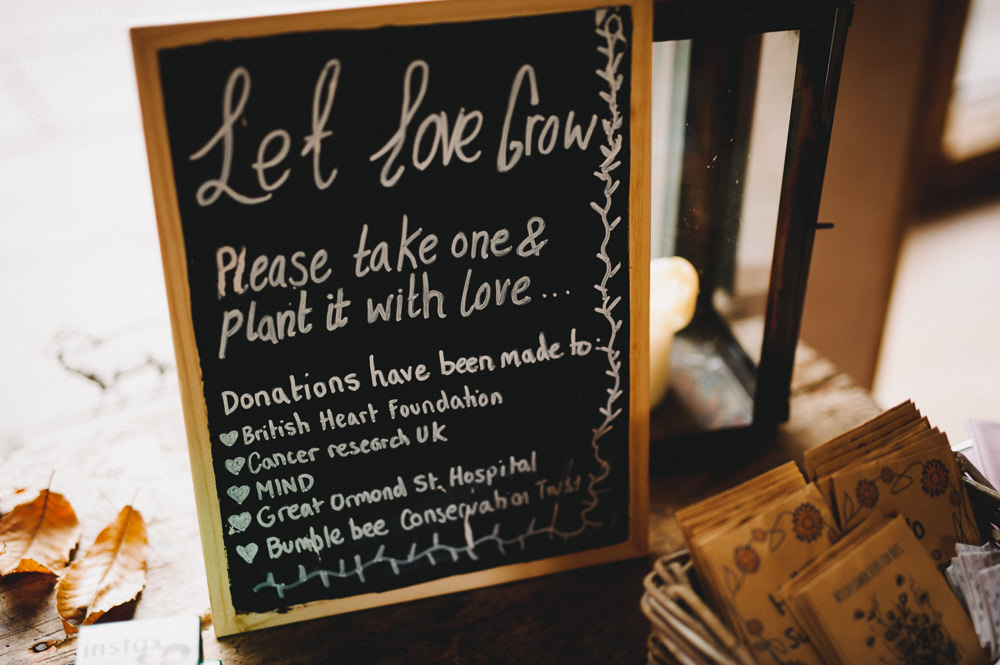 Let Love Grow
Please take one &
plant it with love...
Donations have been made to:
British Heart Foundation
Cancer research UK
MIND
Great Ormond St. Hospital
Bumble bee Conservation Trust
instax